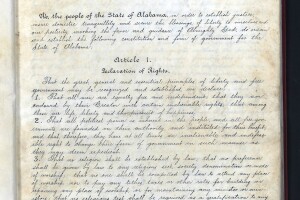 We, the people of the State of Alabama, in order to establish justice,
insure domestic tranquillity and secure the blessings of liberty to ourselves and
our posterity, invoking the favor and guidance of Almighty God, do ordain
and establish the following constitution and form of government for the
State of Alabama.
Article 1.
Declaration of Rights.
That the great, general and essential principles of liberty and free
government may be recognized and established, we declare:
1. That all men are equally free and independent; that they are
endowed by their Creator with certain inalienable rights; that among
these are life, liberty and the pursuit of happiness.
2. That all political power is inherent in the people, and all free gov-
ernments are founded on their authority, and instituted for their benefit;
and that, therefore, they have at all times an inalienable and indefeas-
ible right to change their form of government in such manner as
they may deem expedient.
3. That no religion shall be established by law; that no preference
shall be given by law to any religious sect, society, denomination or mode
of worship; that no one shall be compelled by law to attend any place
of worship; nor to pay any tithes, taxes or other rate for building or
repairing any place of worship, or for maintaining any minister or min-
istry; that no religious test shall be required as a qualification to any